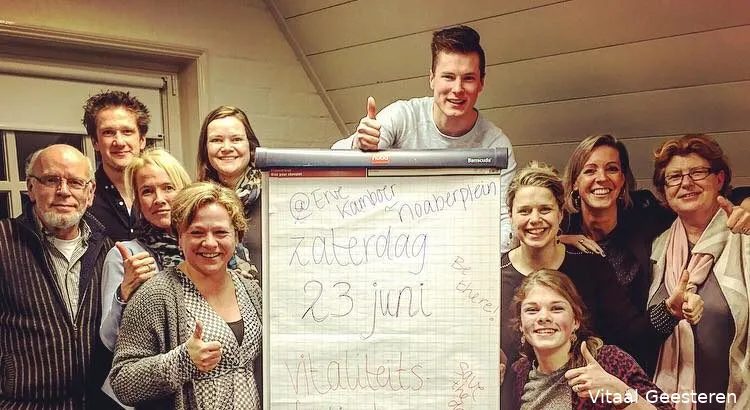 Nobo
Barracuda
@Erve
Kamboer
Noaberplein
zaterdag
23 juni
Be
there!
vitaliteits-
Vitaal Geesteren